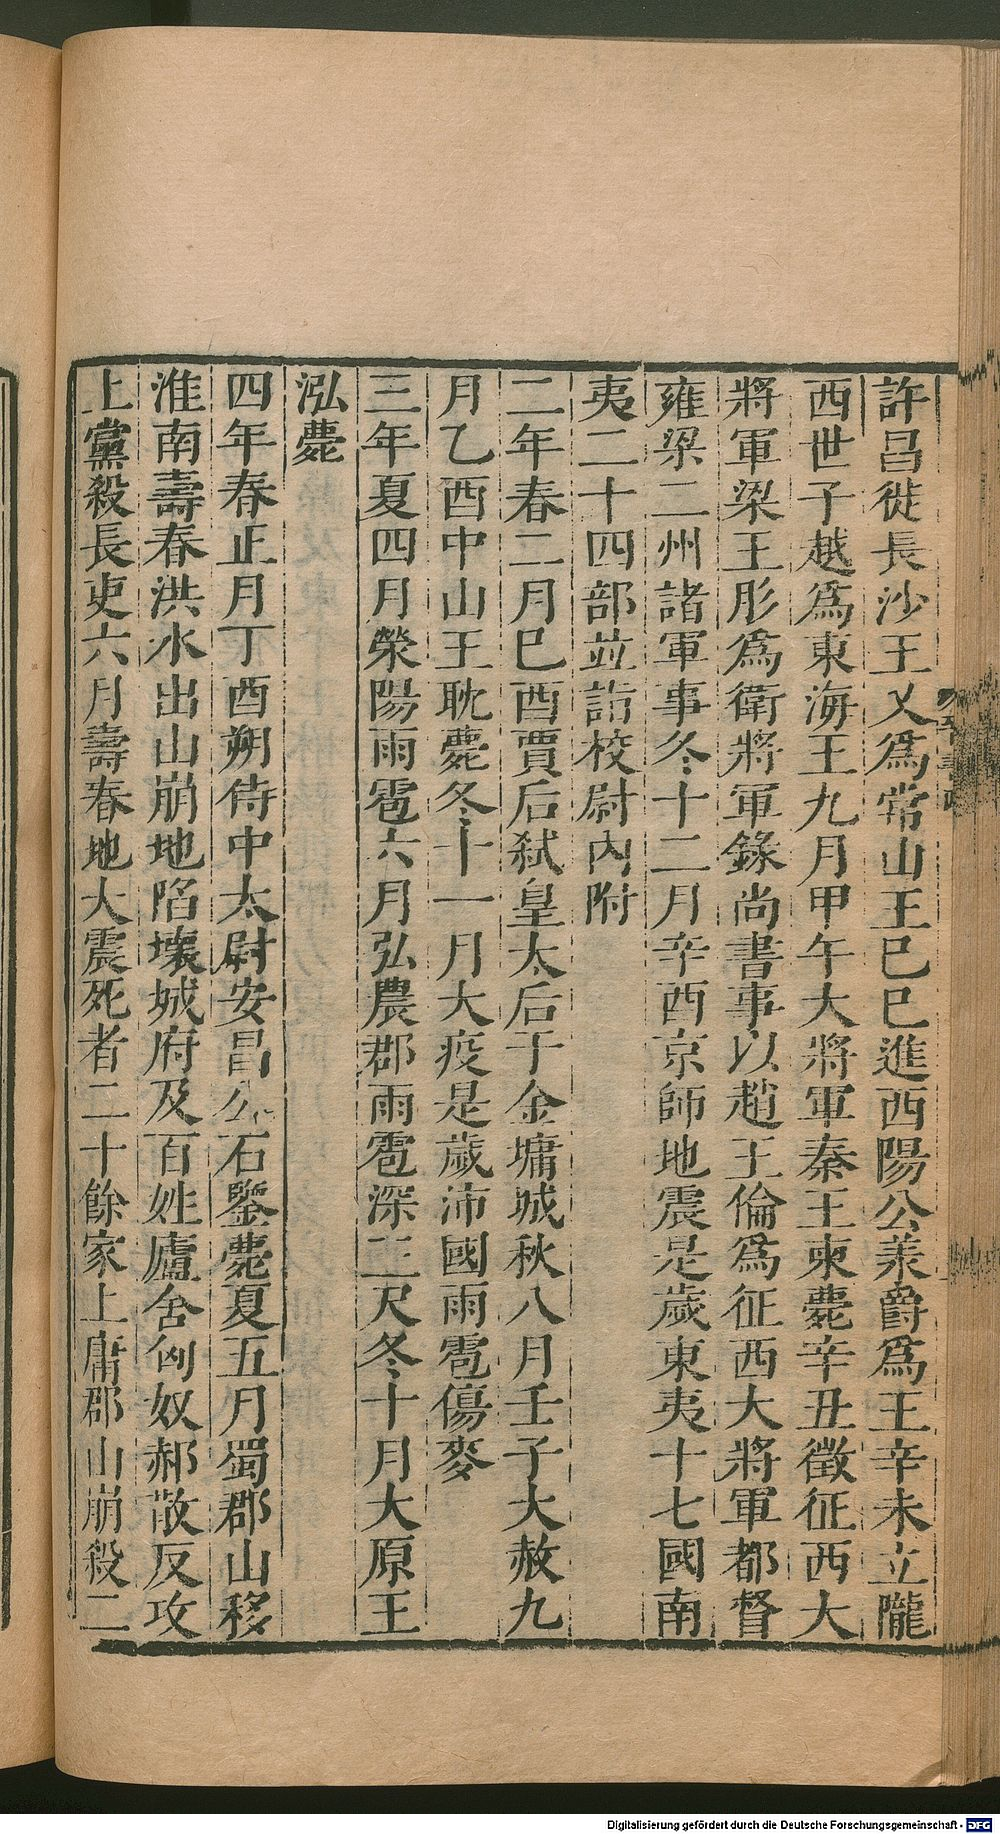 許昌徙長沙王乂爲常山王巳巳進西陽公羕爵爲王辛未立隴
西世子越爲東海王九月甲午大將軍秦王柬薨辛丑徵征西大
將軍梁王肜爲衛將軍錄尚書事以趙王倫爲征西大將軍都督
雍梁二州諸軍事冬十二月辛酉京師地震是歲東夷十七國南
夷二十四部並詣校尉內附
二年春二月巳酉賈后弒皇太后于金墉城秋八月壬子大赦九
月乙酉中山王耽薨冬十一月大疫是歲沛國雨雹傷麥
三年夏四月滎陽雨雹六月弘農郡雨雹深三尺冬十月大原王
泓薨
四年春正月丁酉朔侍中太尉安昌公石鑒薨夏五月蜀郡山移
淮南壽春洪水出山崩地陷壞城府及百姓廬舍匈奴郝散反攻
上黨殺長吏六月壽春地大震死者二十餘家上庸郡山崩殺二
Digitalisierung gefördert durch die Deutsche Forschungsgemeinschaft - DFG